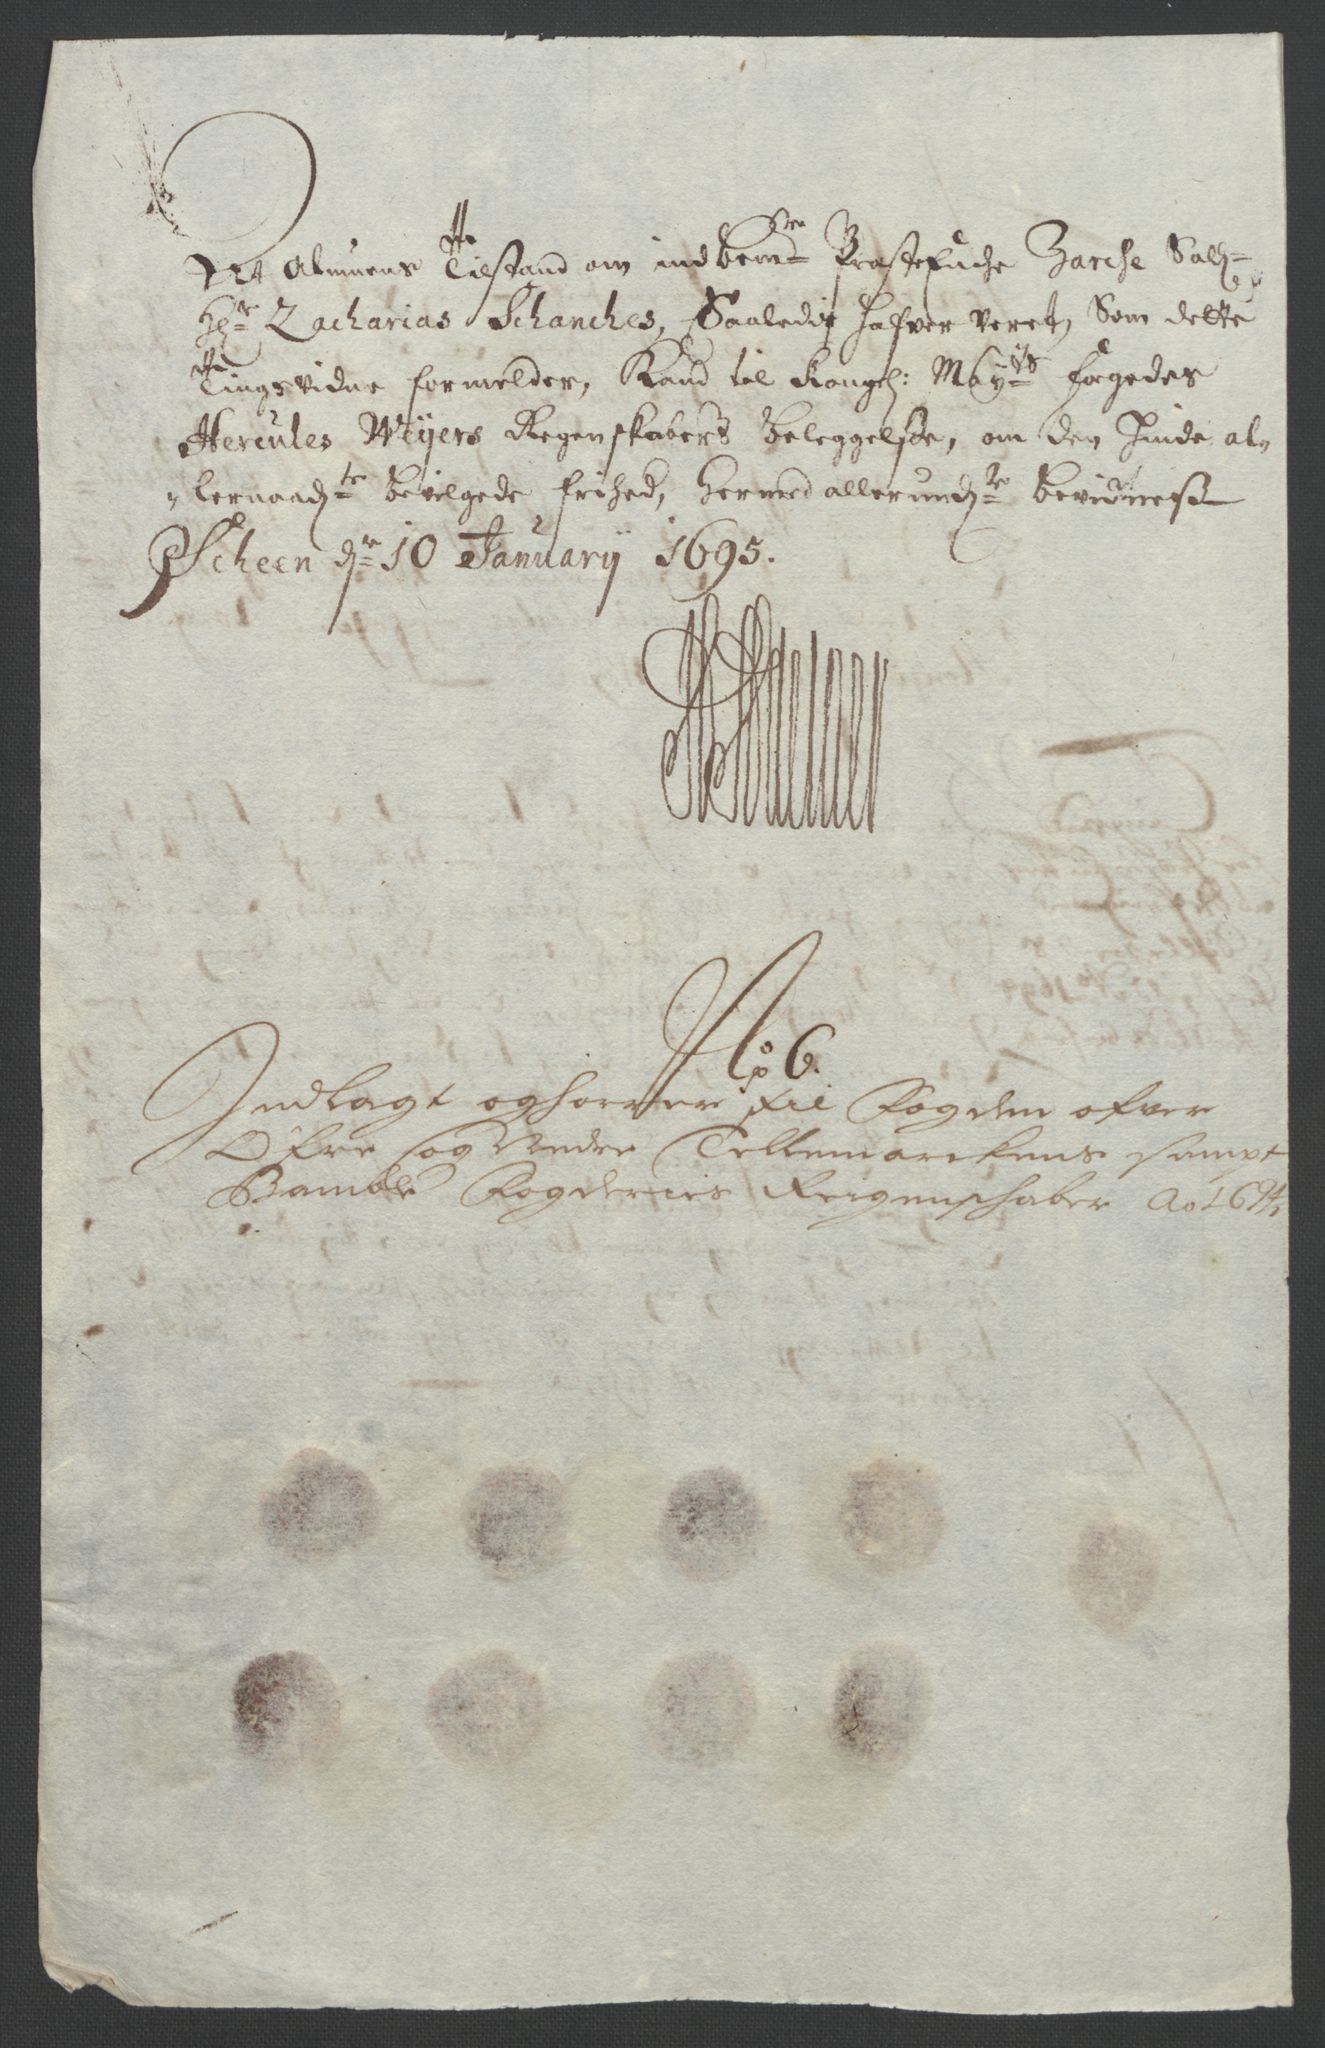 At Armens Tilstand om indbemte Præstefuche Barche Salh
Hr Zacharias Schanches, Saaledis hafver veret, Som dette
Tingsvidne formelder, Kand til Kongel: Mayts fogedes
Hercules Weyers Regenskabers Beleggelse, om den hinde al
lernaadte bevilgede frihed, hermed allerundte bevidnes
Scheen dr 10 January 1695.
No 6.
Indlagt og hører til Fogden ofver
Øfre og Nedre Tellemarckens sampt
Bamble Fogderies Reigenschaber Ao 1694